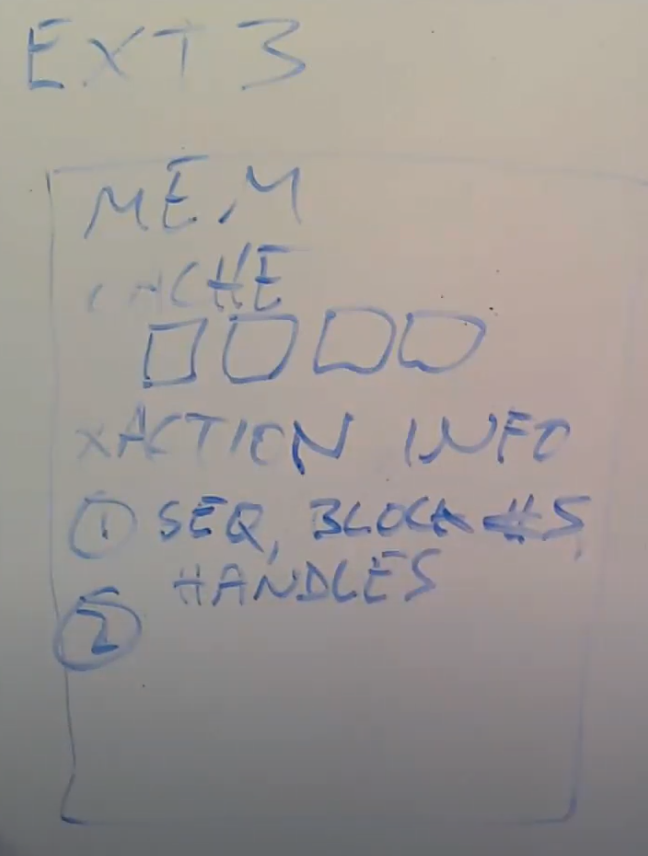 EXT3
MEM
CACHE
XACTION INFO
① SEQ, BLOCK #S,
HANDLES
②